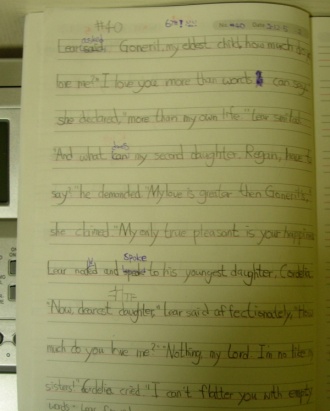 #40
Lear asked Goneril, my eldest child, how much do you
love me?" "I love you more than words can say,"
she declared, "more than my own life." Lear smiled.
"And what does my second daughter, Regan, have to
say?" he demanded. "My love is greater then Goneril's,"
she claimed. "My only true pleasant is your happiness
Lear nodded and spoke to his youngest daughter, Cordelia.
"Now, dearest daughter," Lear said affectionately, "How
much do you love me?" "Nothing, my Lord. I'm not like my
sisters!" Cordelia cried. "I can't flatter you with empty
words." Lear